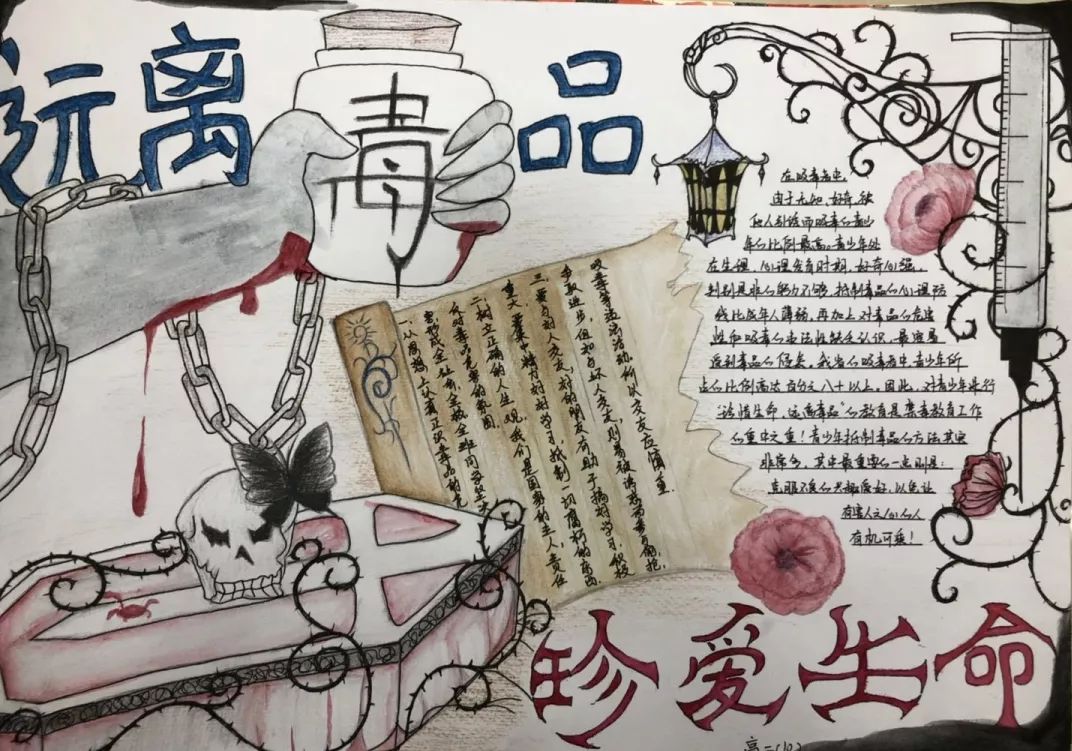 远离毒品
一、从思想上认真正识毒品的危
害形成全社会、全班同学坚决
反对毒品危害的氛围。
二、树立正确的人生观,我们是国家的主人,责任
重大,要集中精力好好学习,抵制一切腐朽的东西。
三、要与好人交友,好的朋友有助于搞好学习,积极
争取进步,但如与坏人交友,则易被诱惑而偷抢、
吸毒等违法活动,所以交友应慎重。
在吸毒者中,
由于无知、好奇、被
他人引诱而吸毒的青少
年的比例最高。青少年处
在生理、心理发育时期,好奇心强,
判别是非的能力不够,抵制毒品的心理防
线比成年人薄弱,再加上对毒品的危害
性和吸毒的违法性缺乏认识,最容易
受到毒品的侵袭。我省的吸毒者中,青少年所
占的比例高达百分之八十以上。因此,对青少年进行
“珍惜生命,远离毒品”的教育是禁毒教育工作
的重中之重!青少年抵制毒品的方法其实
非常多,其中最重要的一点则是:
克服不良的兴趣爱好,以免让
有害人之心的人
有机可乘!
珍爱生命
高二(10)